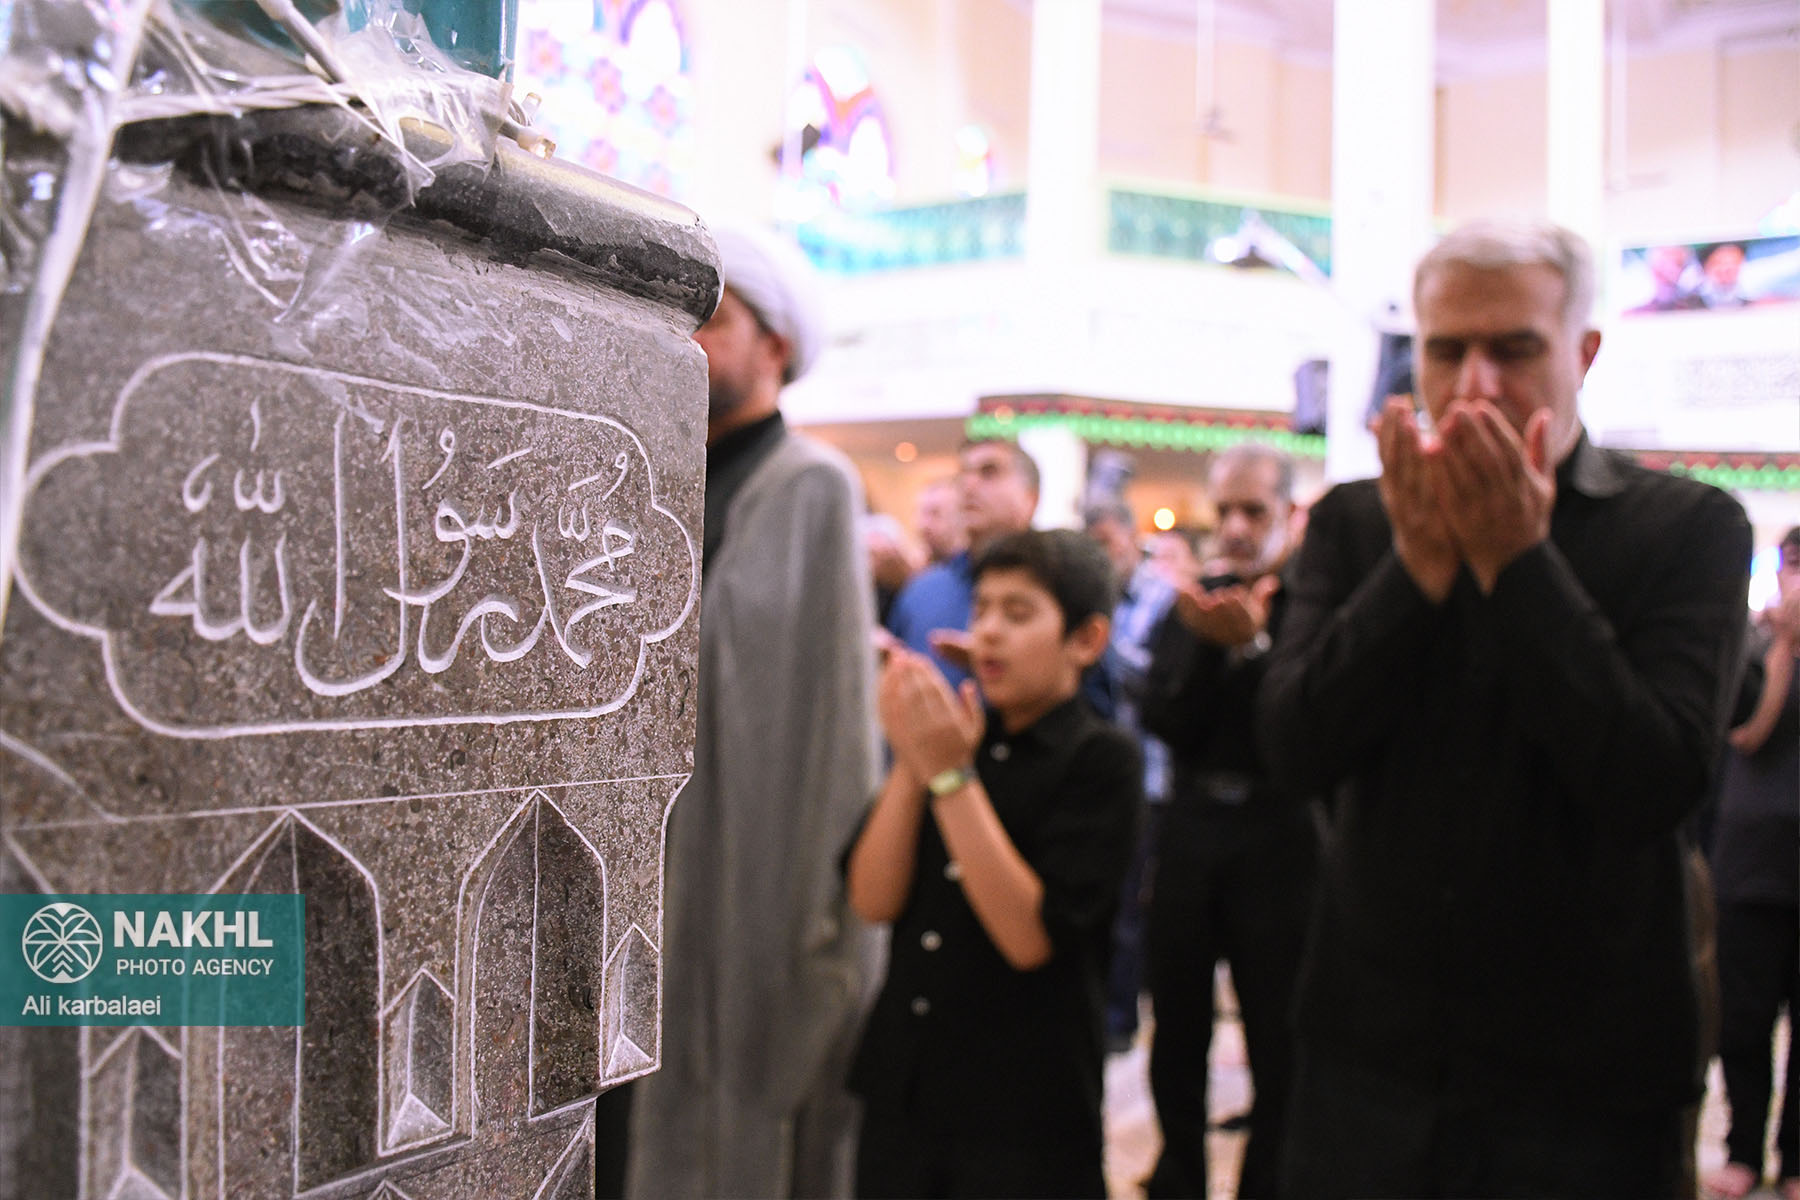 محمّد رسول الله
NAKHL
PHOTO AGENCY
Ali karbalaei